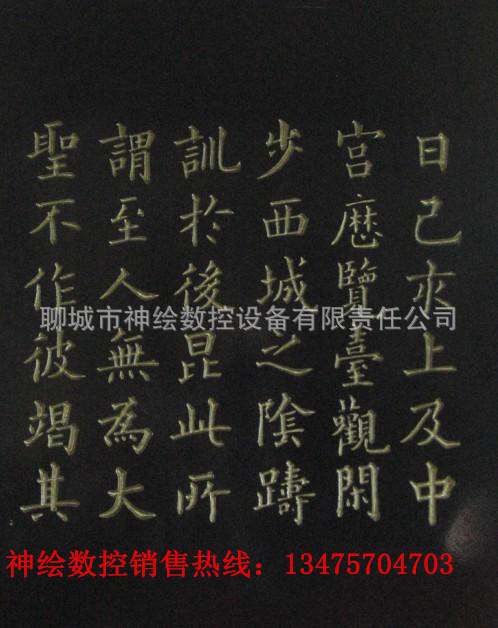 日己亥上及中
宮歷覽臺觀閑
步西城之陰躊
訓於後昆此所
謂至人無為大
聖不作彼竭其
聊城市神绘数控设备有限责任公司
神绘数控销售热线：13475704703